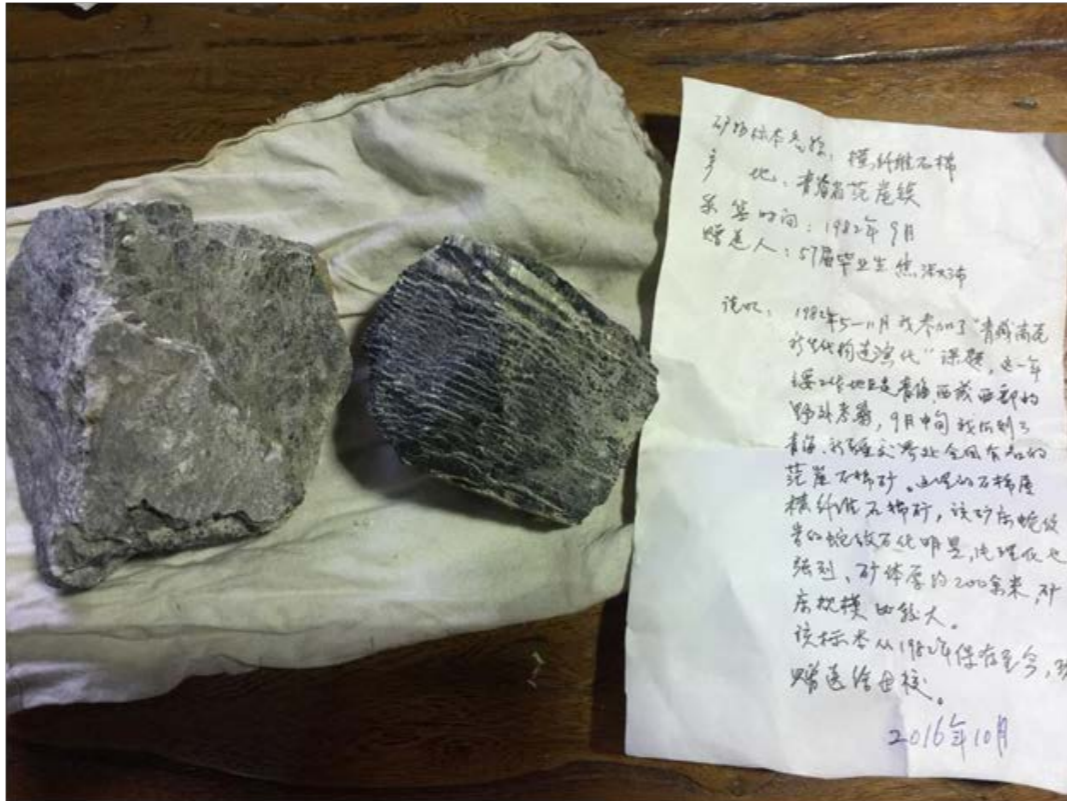 矿物标本名称：横纤维石棉
产 地：青海省茫崖镇
采集时间：1982年9月
赠送人：57届毕业生
说明：1982年5-11月我参加了“青藏高原
新生代构造演化”课题，这一年
主要工作地区是青海、西藏西部的
野外考察，9月中旬我们到了
青海、新疆交界处全国有名的
茫崖石棉矿。这里的石棉属
横纤维石棉矿，该矿床蛇纹
岩的蛇纹石化明显，片理化也
强烈，矿体厚约200余米，矿
床规模也较大。
该标本从1982年保存至今，现
赠送给母校。
2016年10月